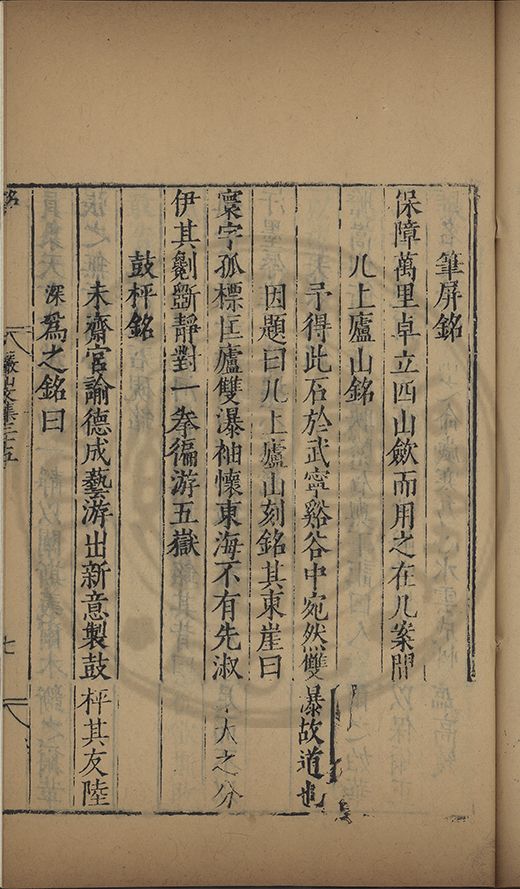 筆屏銘
保障萬里卓立四山斂而用之在几案間
几上廬山銘
予得此石於武寧谿谷中宛然雙瀑故道也
因題曰几上廬山刻銘其東崖曰
寰宇孤標匡廬雙瀑袖懷東海不有先淑大之分
伊其劖斲靜對一拳徧游五嶽
鼓枰銘
未齋宮諭德成藝游出新意製鼓枰其友陸
深為之銘曰
儼山文集三十五
七